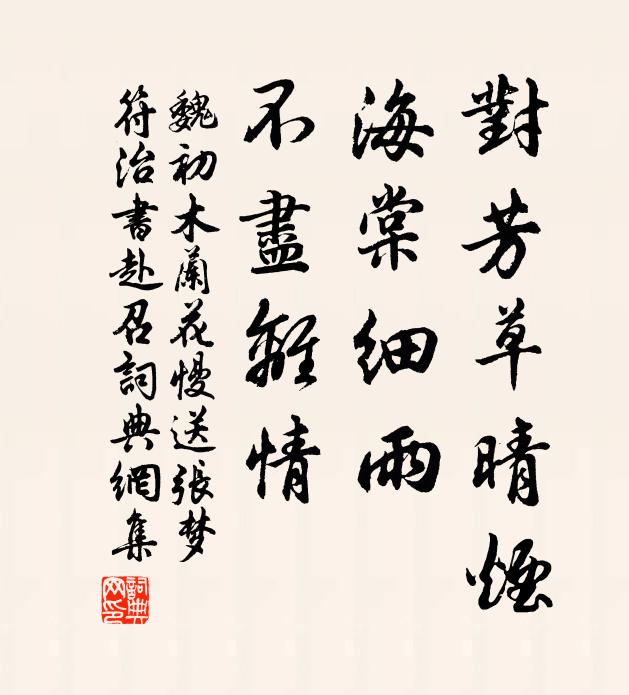 對芳草晴煙
海棠細雨
不盡離情
魏初木蘭花慢送張梦
符治書赴召詞典網集
詞典網印